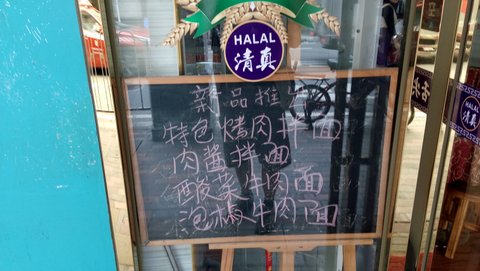 HALAL
清真
新品推广
特色烤肉拌面
肉酱拌面
酸菜牛肉面
泡椒牛肉面
HALAL
清真